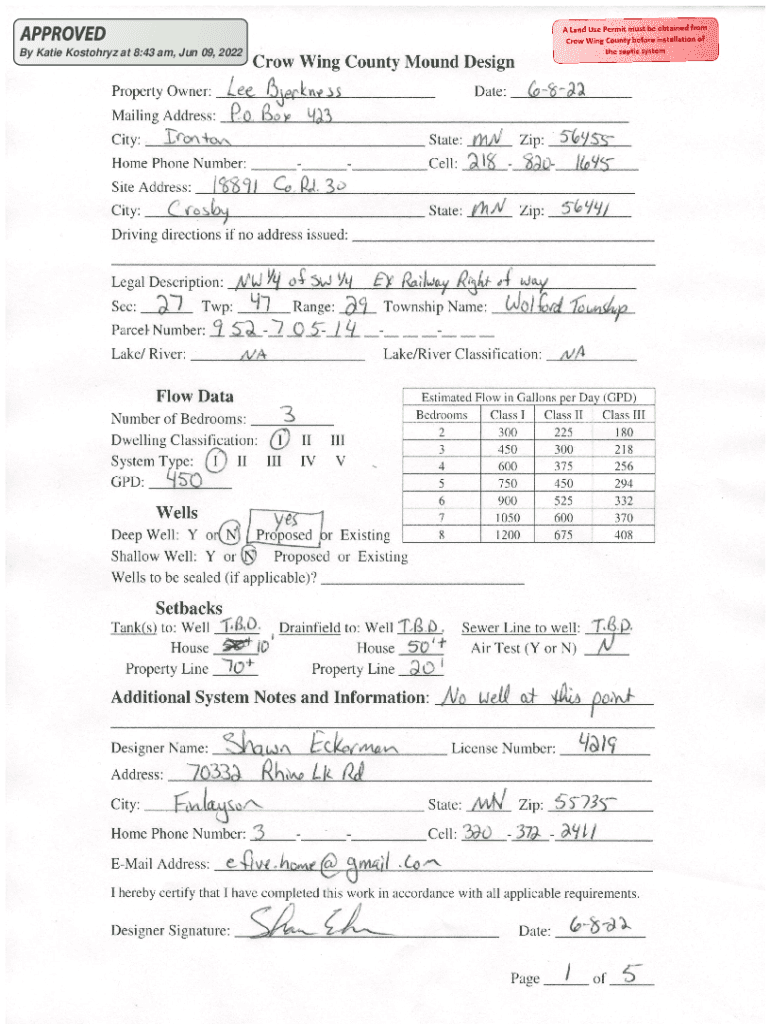 APPROVED
By Katie Kostohryz at 8:43 am, Jun 09, 2022
A Land Use Permit must be obtained from
Crow Wing County before installation of
the septic system
Crow Wing County Mound Design
Property Owner: Lee Bjerkness Date: 6-8-22
Mailing Address: P.O. Box 423
City: Ironton State: MN Zip: 56455
Home Phone Number: - - Cell: 218 - 820- 1645
Site Address: 18891 Co. Rd. 30
City: Crosby State: MN Zip: 56441
Driving directions if no address issued:
Legal Description: NW 1/4 of SW 1/4 EX Railway Right of way
Sec: 27 Twp: 47 Range: 29 Township Name: Wolford Township
Parcel Number: 9 5 2 - 7 0 5 - 1 4 - -
Lake/ River: NA Lake/River Classification: NA
Flow Data
Number of Bedrooms: 3
Dwelling Classification: I II III
System Type: I II III IV V
GPD: 450
Estimated Flow in Gallons per Day (GPD)
Bedrooms Class I Class II Class III
2 300 225 180
3 450 300 218
4 600 375 256
5 750 450 294
6 900 525 332
7 1050 600 370
8 1200 675 408
Wells
yes
Deep Well: Y or N Proposed or Existing
Shallow Well: Y or N Proposed or Existing
Wells to be sealed (if applicable)?
Setbacks
Tank(s) to: Well T.B.D. Drainfield to: Well T.B.D. Sewer Line to well: T.B.D.
House 10' House 50'+ Air Test (Y or N) N
Property Line 70+ Property Line 20'
Additional System Notes and Information: No well at this point
Designer Name: Shawn Eckerman License Number: 4219
Address: 70332 Rhine Lk Rd
City: Finlayson State: MN Zip: 55735
Home Phone Number: 3 - - Cell: 320 - 372 - 2411
E-Mail Address: efive.home@gmail.com
I hereby certify that I have completed this work in accordance with all applicable requirements.
Designer Signature: Date: 6-8-22
Page 1 of 5